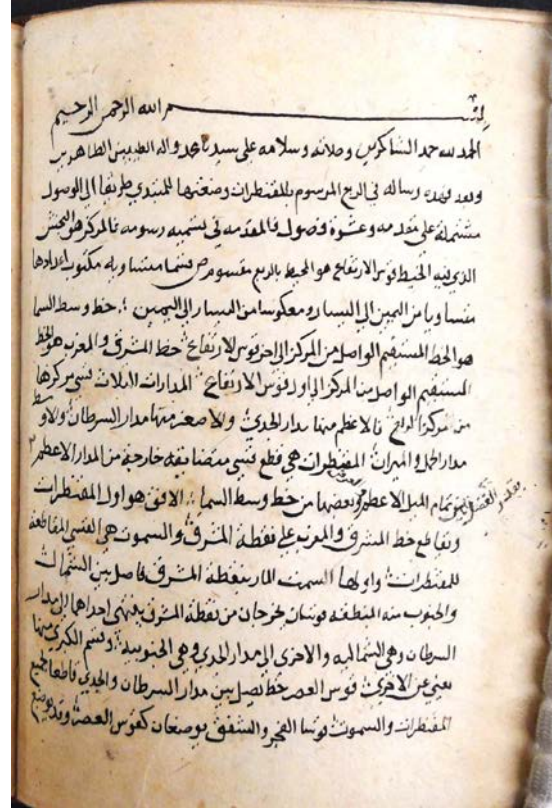 بسم الله الرحمن الرحيم
الحمد لله حمد الشاكرين وصلاته وسلامه على سيدنا محمد واله الطيبين الطاهرين
وبعد فهذه رساله في الربع المرسوم بالمقنطرات وضعتها للمبتدي طريقا الى الوصول
مشتملة على مقدمه وعشرة فصول فالمقدمه في تسميه رسومه فالمركز هو البخش
الذي فيه الخيط قوس الارتفاع هو المحيط بالربع مقسوم ص قسما متساويه مكتوب اعدادها
متساويا من اليمين الى اليسار ومعكوسا من اليسار الى اليمين خط وسط السما
هو الخط المستقيم الواصل من المركز الى اخر قوس الارتفاع خط المشرق والمغرب هو الخط
المستقيم الواصل من المركز الى اول قوس الارتفاع المدارات الثلاث قسي مركزها
من مركز الربع فالاعظم منها مدار الجدي والاصغر منها مدار السرطان والاوسط
مدار الحمل والميزان المقنطرات هي قطع قسي متضايقه خارجة من المدار الاعظم
تمام الميل الاعظم وبعضها من خط وسط السما الافق هو اول المقنطرات
وتقاطع خط المشرق والمغرب على نقطة المشرق والسموت هي القسي المقاطعة
للمقنطرات واولها السمت المار بنقطة المشرق فاصل بين الشمال
والجنوب منه المنطقه قوسان يخرجان من نقطة المشرق ينتهي احداهما الى مدار
السرطان وهي الشماليه والاخرى الى مدار الجدي وهي الجنوبية وقسم الكبرى منها
يغني عن الاخرى قوس العصر خط يصل بين مدار السرطان والجدي قاطعا جميع
المقنطرات والسموت قوسا الفجر والشفق يوضعان كقوس العصر وقد يوضع